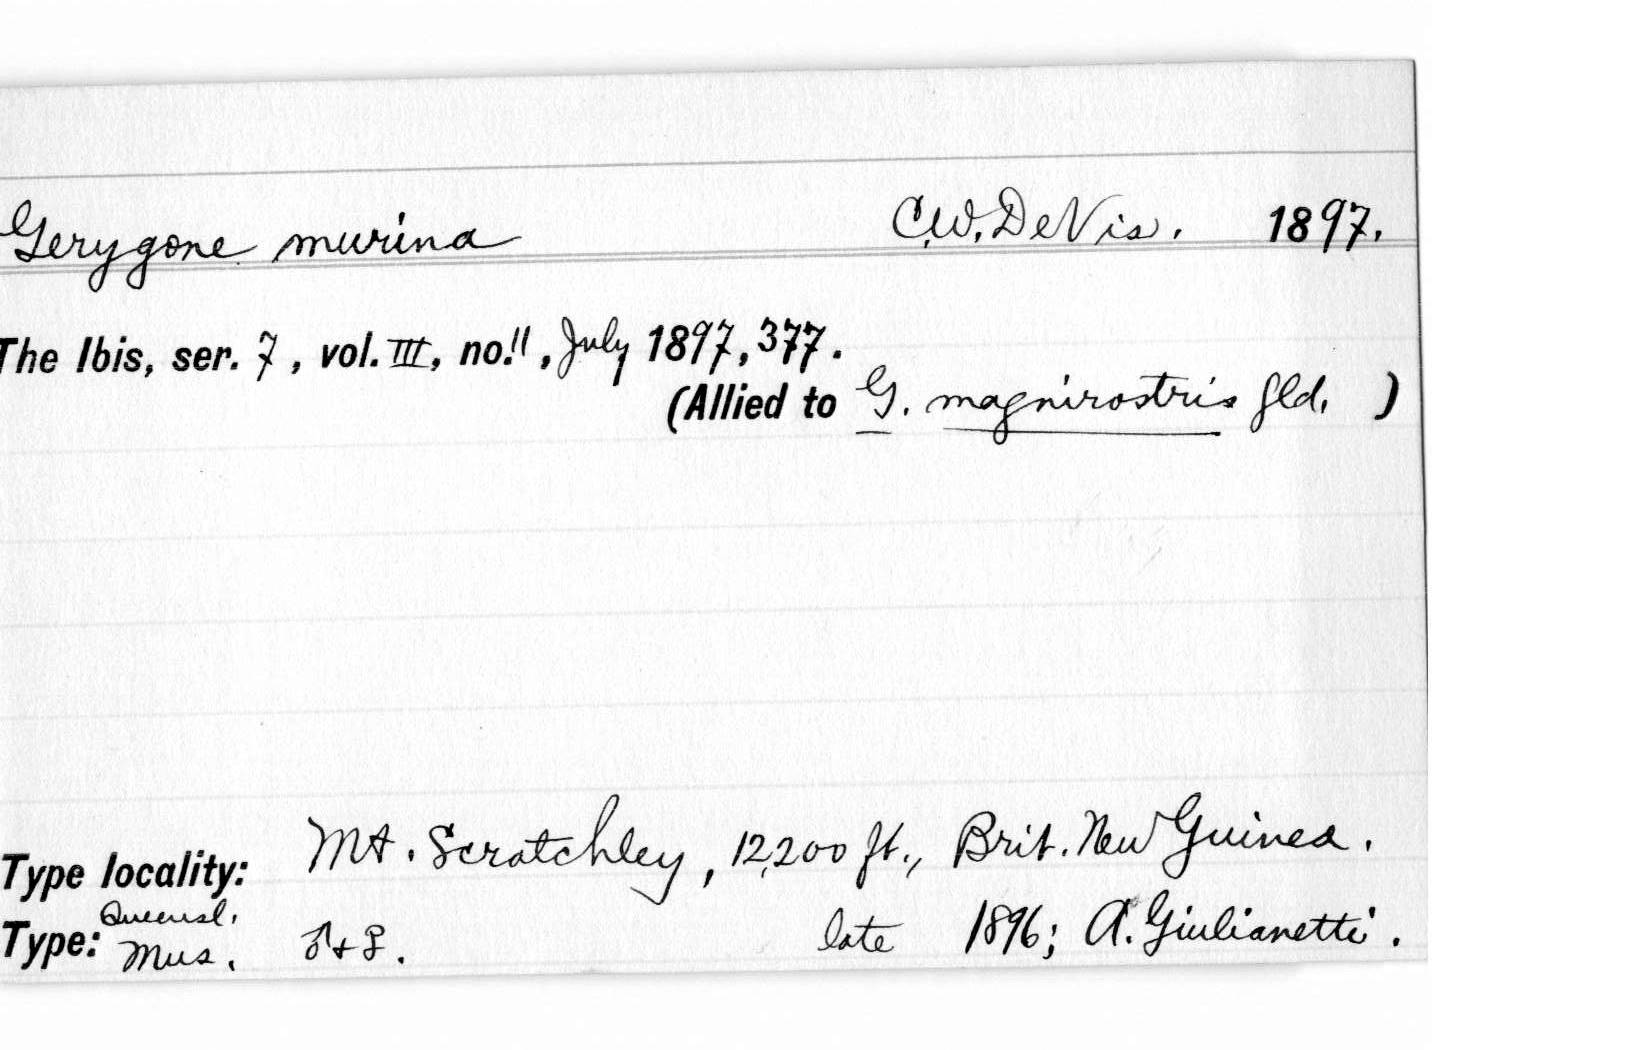 Gerygone murina C.W. DeVis. 1897.
The Ibis, ser. 7, vol. III, no. 11, July 1897, 377.
(Allied to G. magnirostris Gld. )
Type locality: Mt. Scratchley, 12,200 ft., Brit. New Guinea.
Type: Queensl. Mus. ♂ + ♀. late 1896; A. Giulianetti.